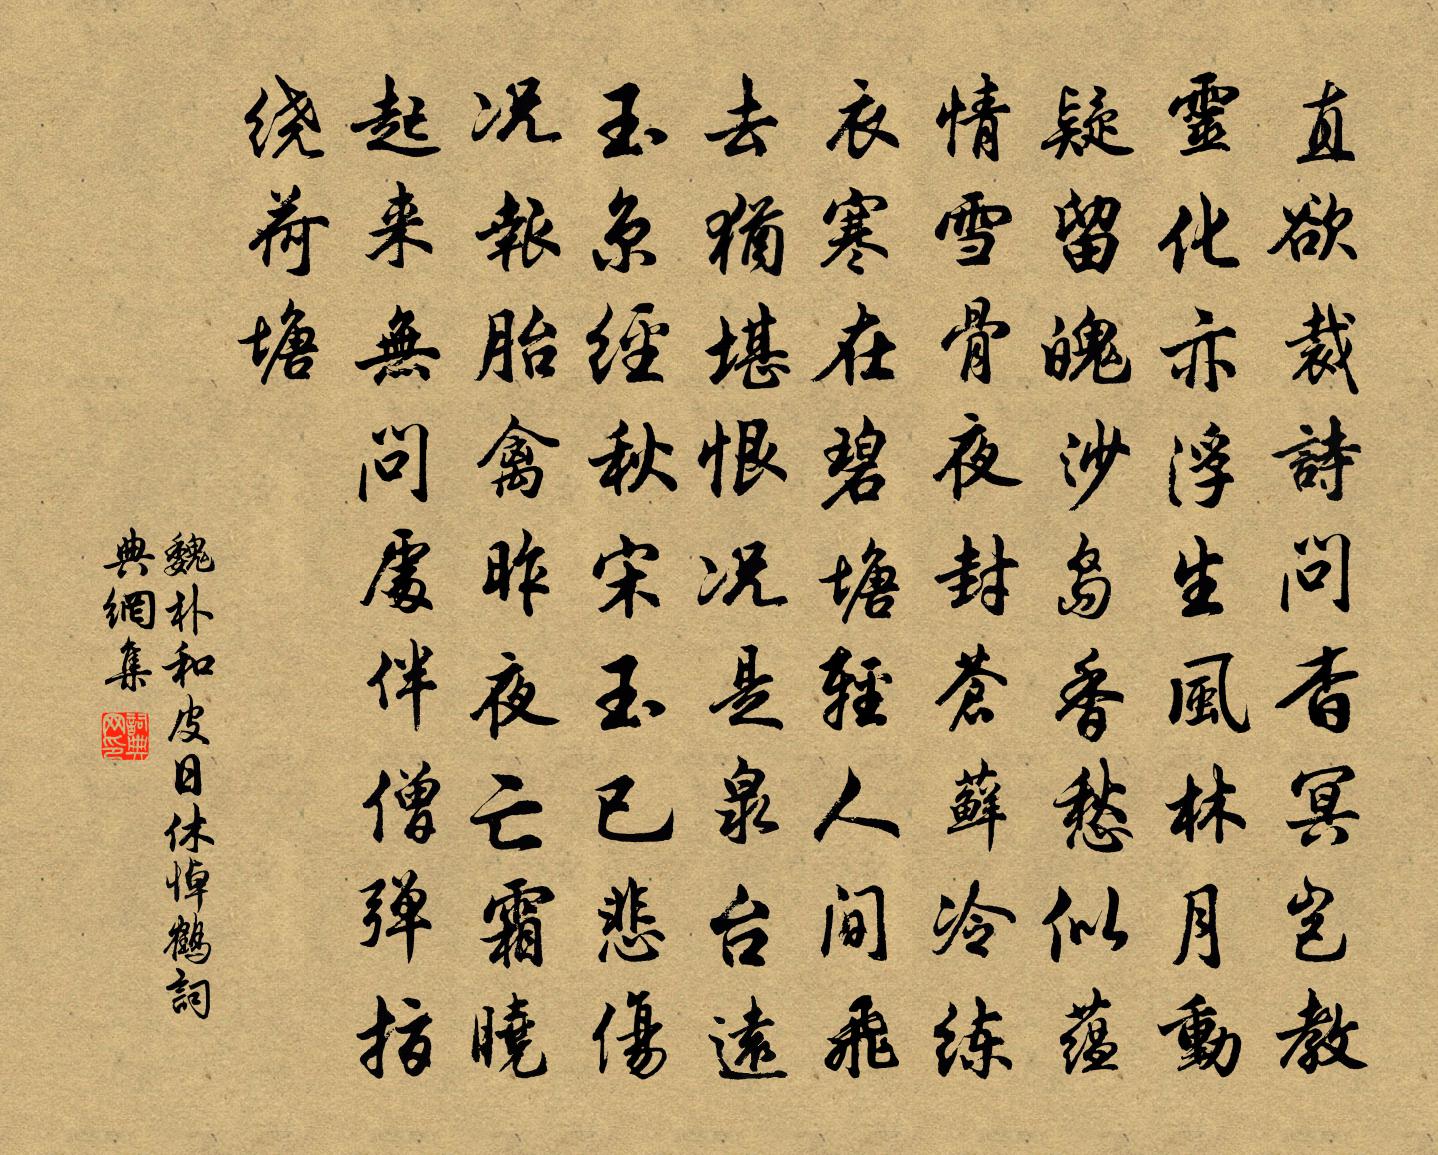 直欲裁詩問杳冥豈教
靈化亦浮生風林月動
疑留魄沙島香愁似蕴
情雪骨夜封蒼蘚冷练
衣寒在碧塘輕人间飛
去猶堪恨况是泉台遠
玉京經秋宋玉已悲傷
况報胎禽昨夜亡霜曉
起来無問處伴僧弹指
绕荷塘
魏朴和皮日休悼鶴詞
典網集
詞典网印